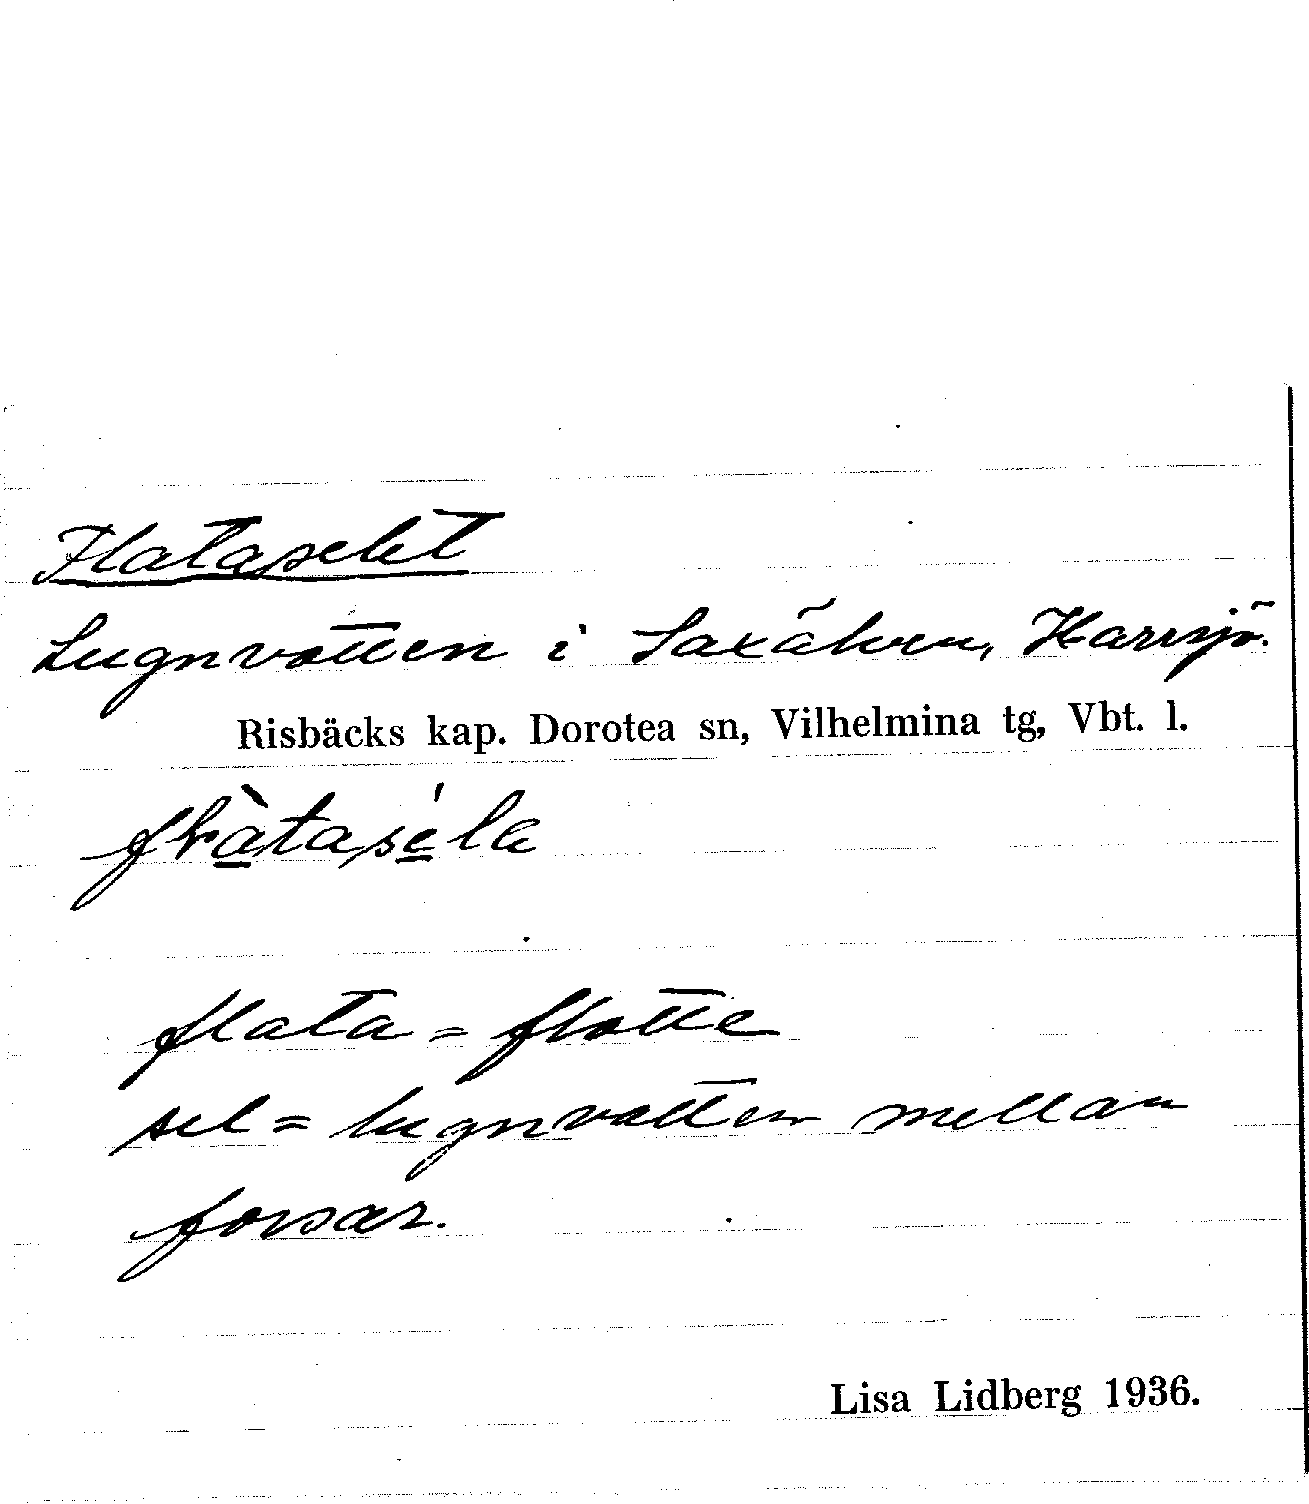 Flataselet
Lugnvatten i Saxälven, Harrsjö.
Risbäcks kap. Dorotea sn, Vilhelmina tg, Vbt. l.
flàtasèla
flata = flotte
sel = lugnvatten mellan
forsar.
Lisa Lidberg 1936.